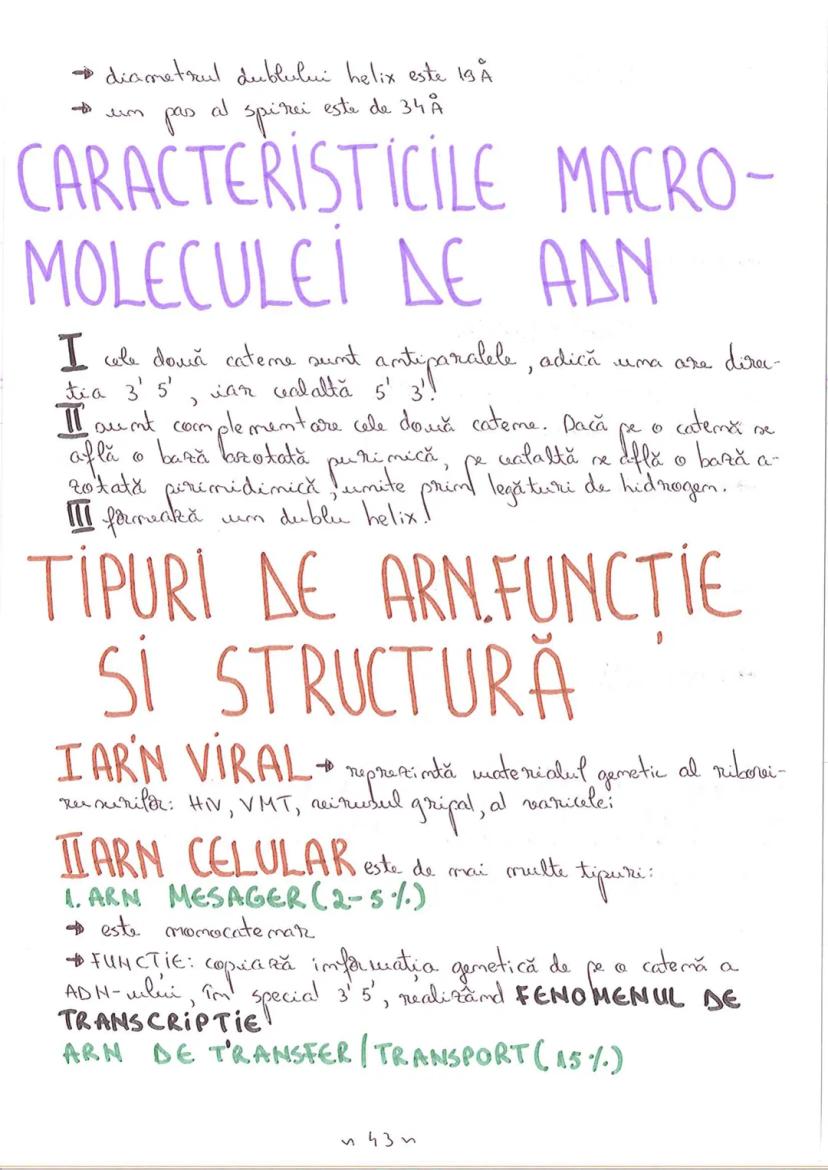 → diametrul dublului helix este 19Å
→ un pas al spirei este de 34Å
CARACTERISTICILE MACRO-
MOLECULEI DE ADN
I cele două catene sunt antiparalele, adică una are direc-
tia 3' 5', iar cealaltă 5' 3'!
II sunt complementare cele două catene. Dacă pe o catenă se
află o bază azotată purinică, pe cealaltă se află o bază a-
zotată pirimidinică, unite prin legături de hidrogen.
III formează un dublu helix!
TIPURI DE ARN.FUNCȚIE
SI STRUCTURĂ
I ARN VIRAL → reprezintă materialul genetic al ribovi-
rusurilor: HIV, VMT, virusul gripal, al varicelei
II ARN CELULAR este de mai multe tipuri:
1. ARN MESAGER (2-5%)
→ este monocatenar
→ FUNCȚIE: copiază informația genetică de pe o catenă a
ADN-ului, în special 3' 5', realizând FENOMENUL DE
TRANSCRIPTIE!
ARN DE TRANSFER/TRANSPORT (15%)
~ 43 ~